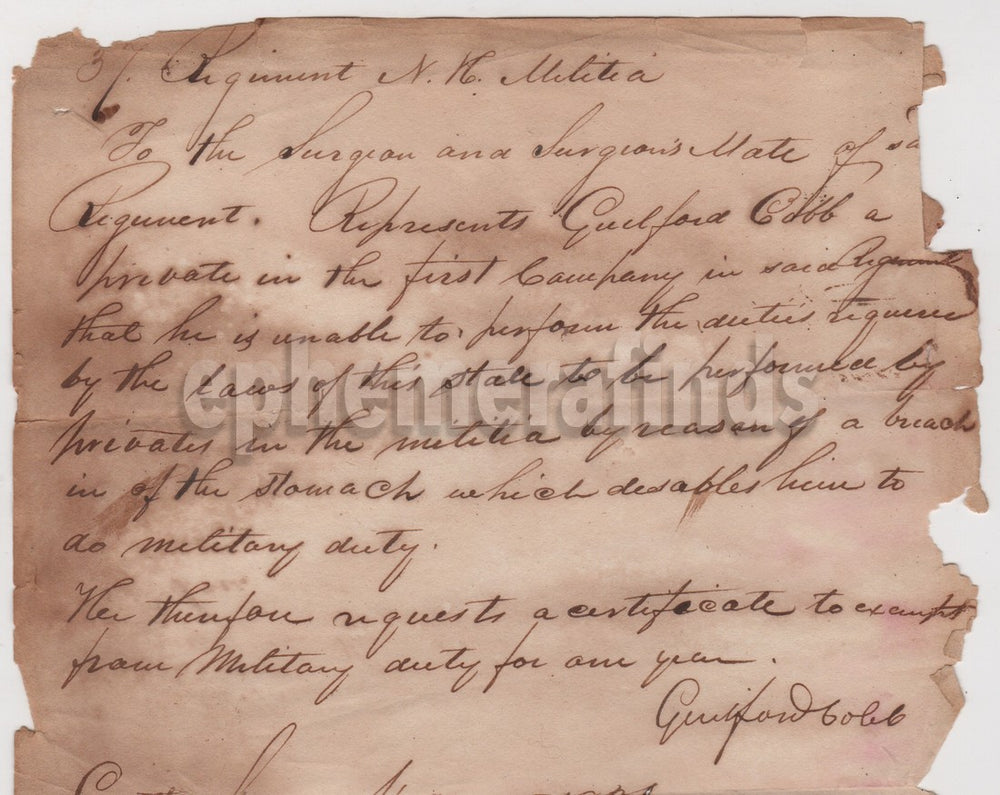 37. Regiment N. H. Militia
To the Surgeon and Surgeon's Mate of sd
Regiment. Represents Guilford Cobb a
private in the first Company in said Regiment
that he is unable to perform the duties required
by the Laws of this state to be performed by
privates in the militia by reason of a breach
in of the stomach which disables him to
do military duty.
He therefore requests a certificate to exempt
from Military duty for one year.
Guilford Cobb
ephemerafinds